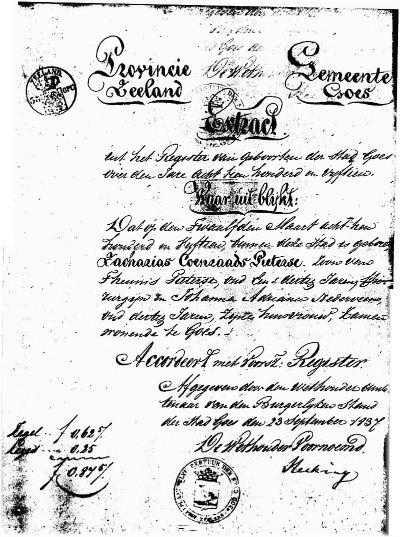 Provincie
Zeeland
Gemeente
Goes
Extract
uit het Register van Geboorten der Stad Goes
over den Jare acht tien honderd en vyftien.
Waar uit blijkt:
Dat op den Twaalfden Maart acht tien
honderd en vyftien, binnen deze Stad is geboren
Zacharias Coenraads Pieterse. Zoon van
Theunis Pieterse, oud Een en dertig Jaren, Chi-
rurgijn en Johanna Adriana
oud dertig Jaren, zijne huisvrouw, zamen
wonende te Goes.
Accordeert met voorsz: Register.
Afgegeven door den Wethouder Amb-
tenaar van den Burgerlyken Stand
der Stad Goes den 23 September 1837
De Wethouder Voornoemd.
Zegel f 0,625
0.25
f 0,875